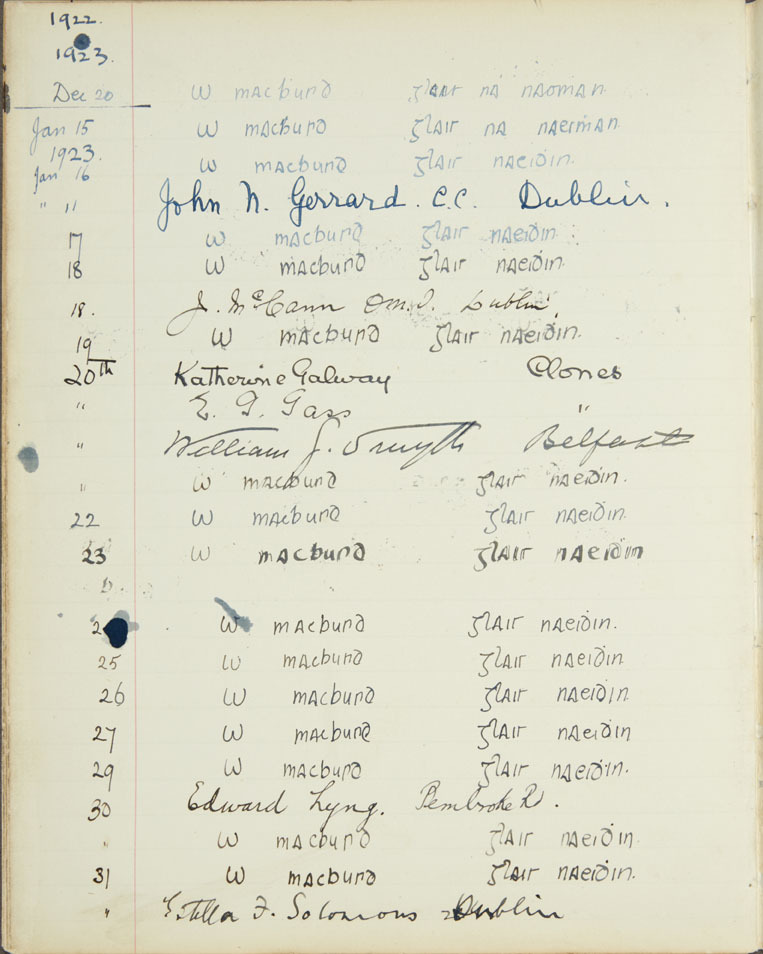 1922.
1923.
Dec 20 W macburd Glair na naoman
Jan 15 W macburd Glair na naeiman
1923.
Jan 16 W macburd Glair naeidin.
" 11 John N. Gerrard. C.C. Dublin.
17 W macburd Glair naeidin
18 W macburd Glair naeidin.
18. J. McCann Dublin.
19 W macburd Glair naeidin.
20th Katherine Galway Clones
" E. G. Gass "
" William J. Smyth Belfast
" W macburd Glair naeiḋin.
22 W macburd Glair naeiḋin.
23 W macburd Glair naeiḋin
W macburd Glair naeiḋin.
25 W macburd Glair naeiḋin
26 W macburd Glair naeiḋin
27 W macburd Glair naeiḋin
29 W macburd Glair naeiḋin.
30 Edward Lyng. Pembroke Rd.
" W macburd Glair naeiḋin.
31 W macburd Glair naeiḋin.
" Estella F. Solomons Dublin